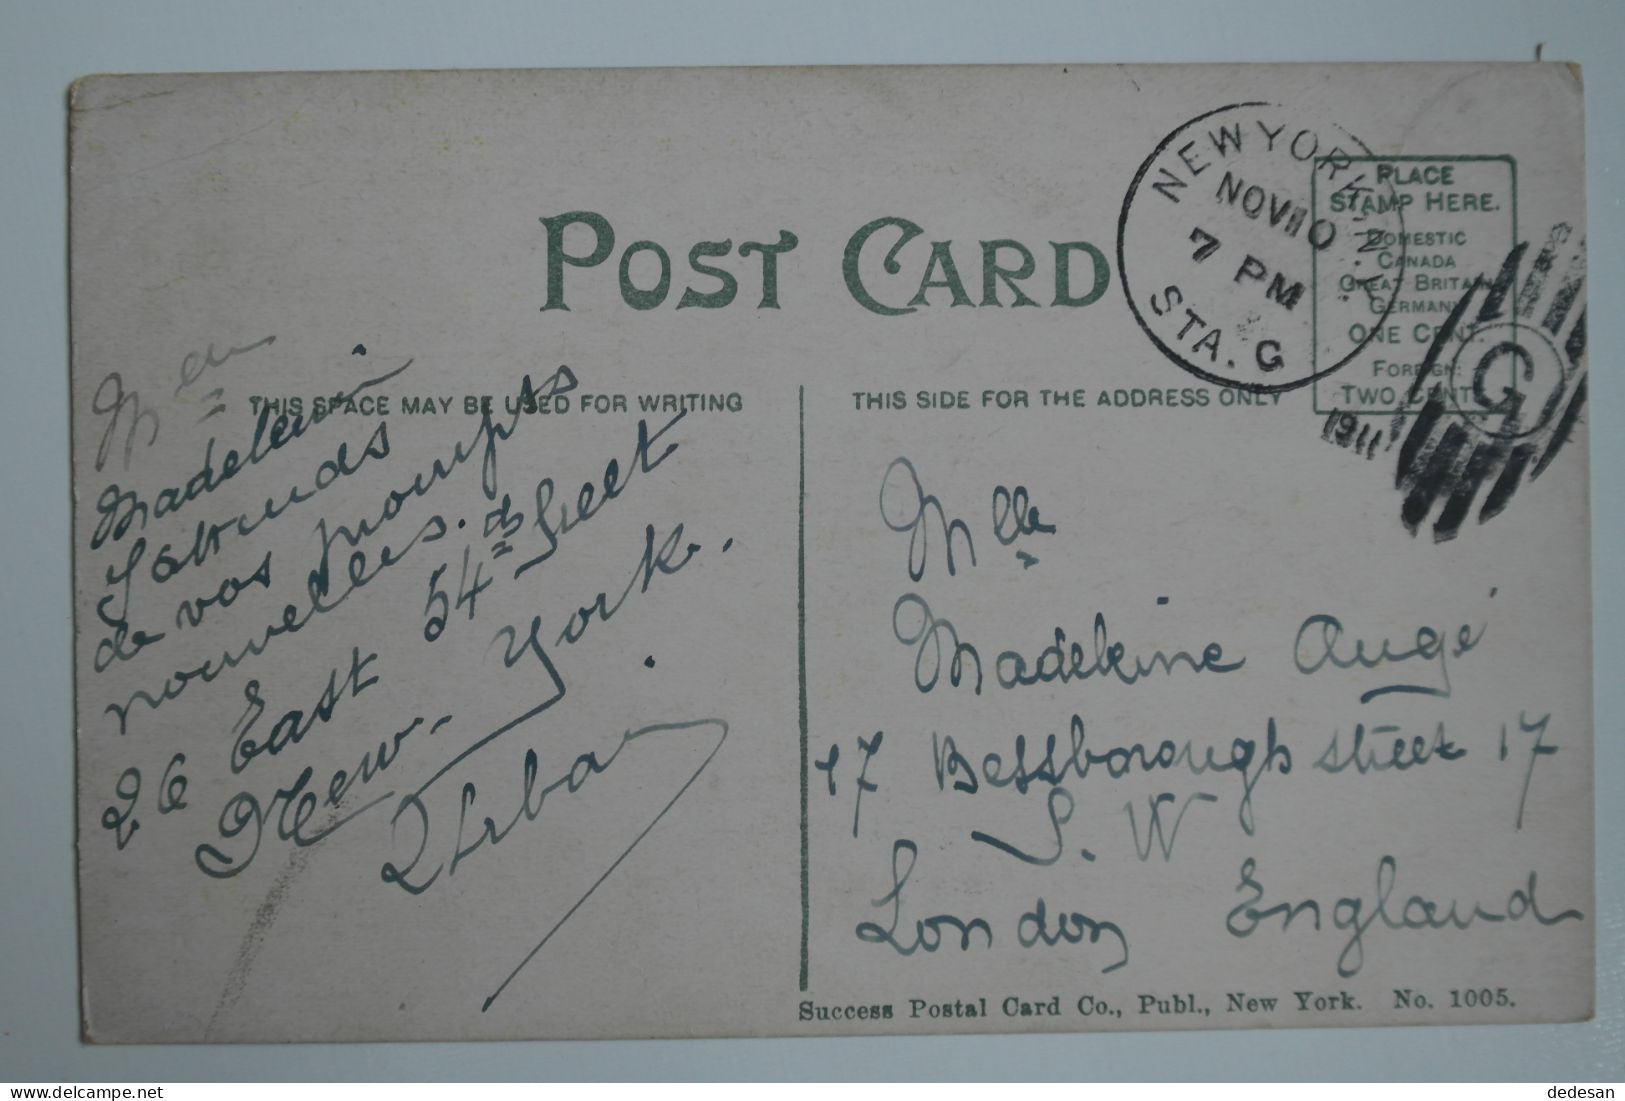 POST CARD
NEW YORK, N.Y.
NOV 10
7 PM
STA. G
1911
G
PLACE
STAMP HERE.
DOMESTIC
CANADA
GREAT BRITAIN
GERMANY
ONE CENT.
FOREIGN:
TWO CENTS
THIS SPACE MAY BE USED FOR WRITING
THIS SIDE FOR THE ADDRESS ONLY
Madeleine
J'attends
de vos promptes
nouvelles.
26 East 54th Street
New-York.
Mlle
Madeleine Augé
17 Bessborough street 17
S. W
London England
Success Postal Card Co., Publ., New York. No. 1005.
dedesan